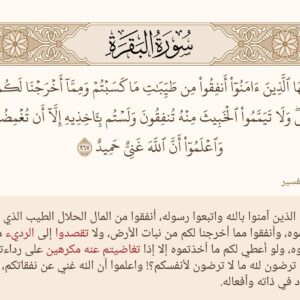 سُورَةُ البَقَرَةِ
هَا ٱلَّذِينَ ءَامَنُوٓا۟ أَنفِقُوا۟ مِن طَيِّبَـٰتِ مَا كَسَبْتُمْ وَمِمَّآ أَخْرَجْنَا لَكُم
وَلَا تَيَمَّمُوا۟ ٱلْخَبِيثَ مِنْهُ تُنفِقُونَ وَلَسْتُم بِـَٔاخِذِيهِ إِلَّآ أَن تُغْمِضُ
وَٱعْلَمُوٓا۟ أَنَّ ٱللَّهَ غَنِىٌّ حَمِيدٌ ٢٦٧
فسير
الذين آمنوا بالله واتبعوا رسوله، أنفقوا من المال الحلال الطيب الذي
وه، وأنفقوا مما أخرجنا لكم من نبات الأرض، ولا تقصدوا إلى الرديء
ه، ولو أعطي لكم ما أخذتموه إلا إذا تغاضيتم عنه مكرهين على رداءت
ترضون لله ما لا ترضون لأنفسكم؟! واعلموا أن الله غني عن نفقاتكم،
د في ذاته وأفعاله.